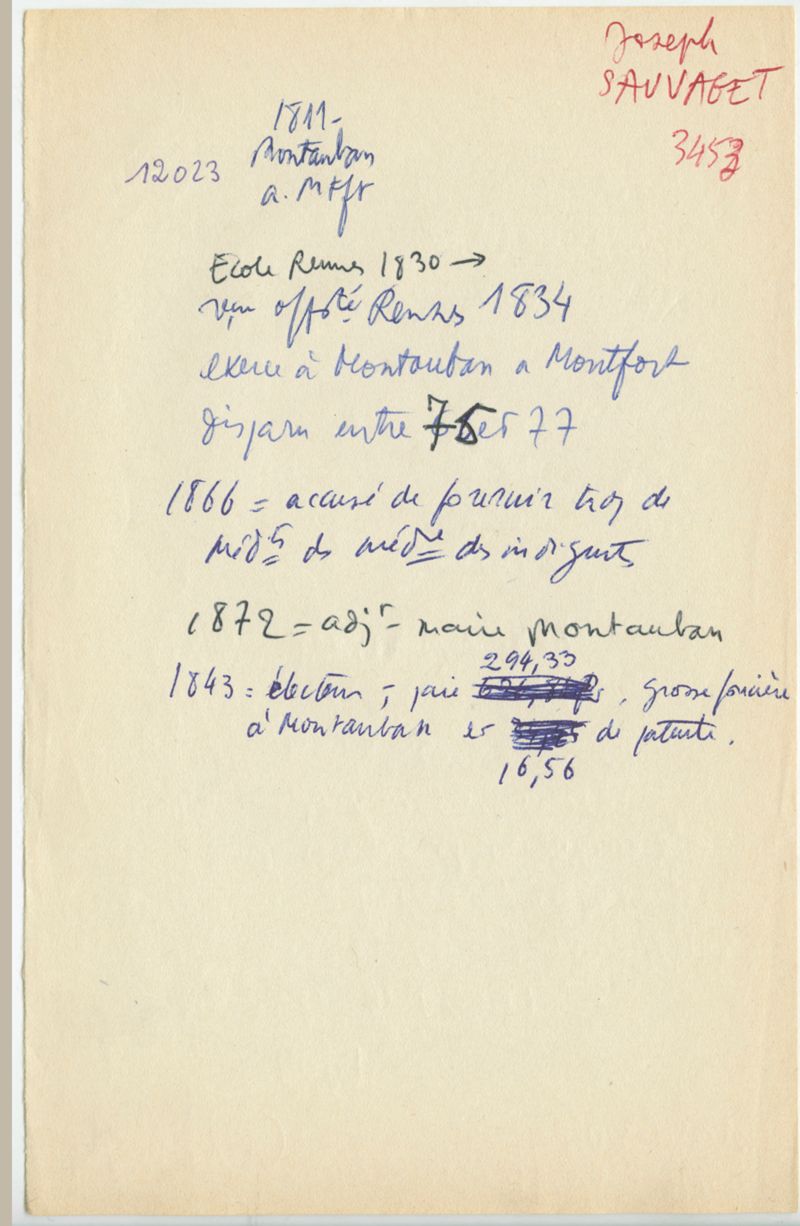 Joseph
SAUVAGET
3453
1811-
Montauban
12023
a. Mtft
Ecole Rennes 1830 →
reçu offté Rennes 1834
exerce à Montauban a Montfort
disparu entre 75 et 77
1866 = accusé de fournir trop de
médts ds médne des indigents
1872 = adjt - maire Montauban
294,33
1843 = électeur, paie , grosse foncière
à Montauban et de patente.
16,56